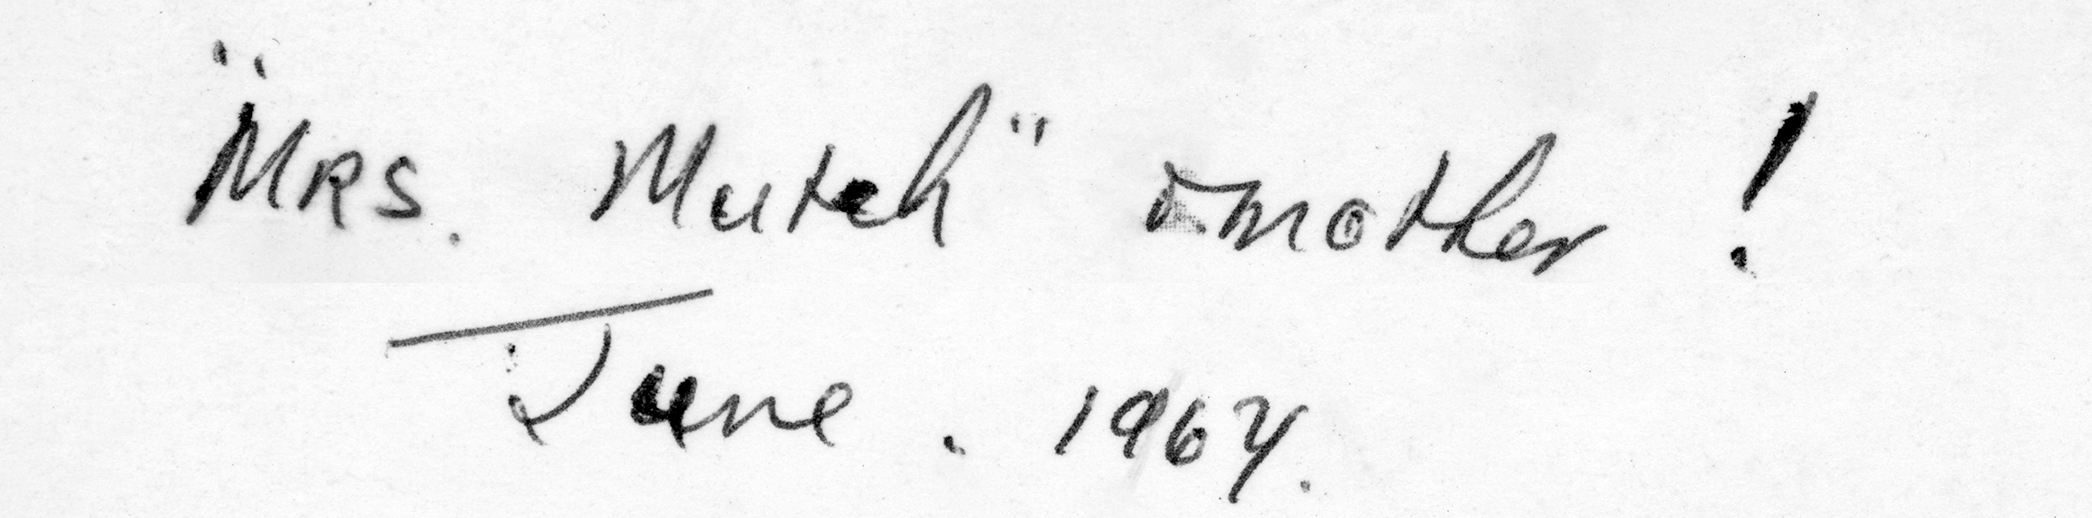 "Mrs. Mutch" & mother!
June. 1964.